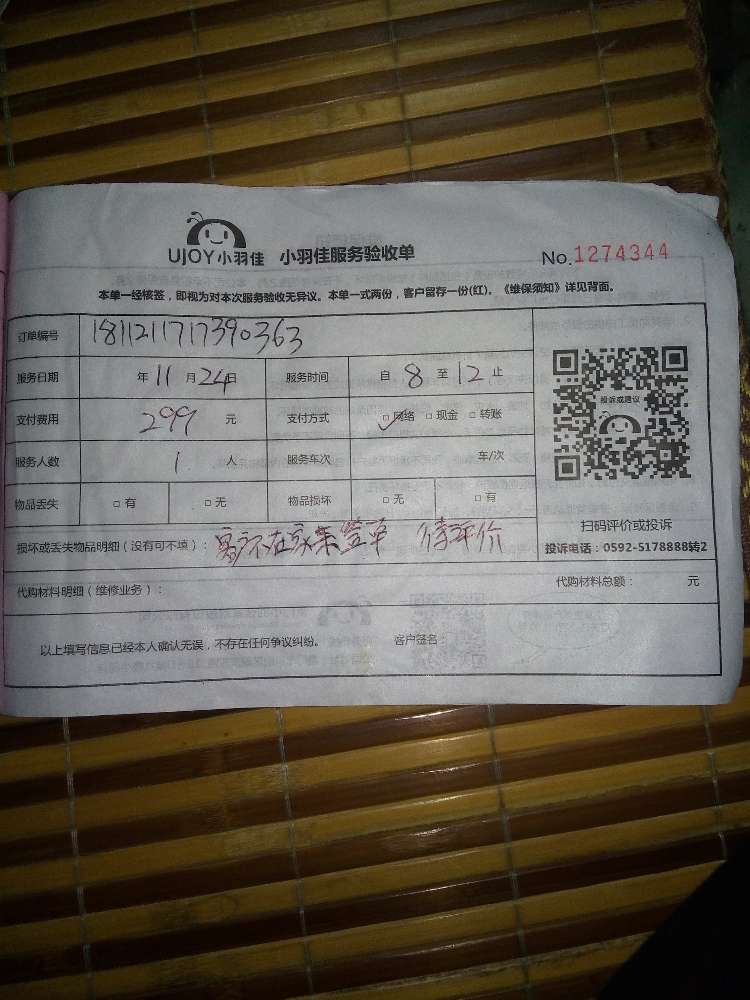 UJOY小羽佳 小羽佳服务验收单 No.1274344
本单一经核签，即视为对本次服务验收无异议。本单一式两份，客户留存一份(红)。《维保须知》详见背面。
订单编号 1811211717390363
服务日期 年 11 月 24 日 服务时间 自 8 至 12 止
投诉或建议
支付费用 299 元 支付方式 □网络 □现金 □转账
服务人数 1 人 服务车次 车/次
物品丢失 □有 □无 物品损坏 □无 □有
扫码评价或投诉
损坏或丢失物品明细（没有可不填）： 客户不在家未签单 待评价
投诉电话：0592-5178888转2
代购材料明细（维修业务）： 代购材料总额： 元
以上填写信息已经本人确认无误，不存在任何争议纠纷。 客户签名：